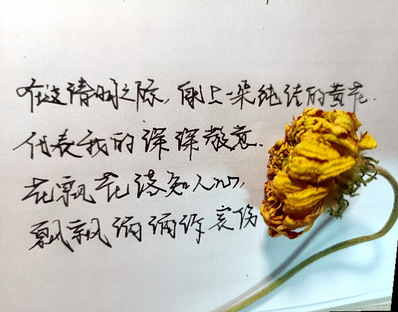 在这清明之际,献上一朵纯洁的黄花.
代表我的深深敬意.
花飘花落知人心,
飘飘洒洒作哀伤